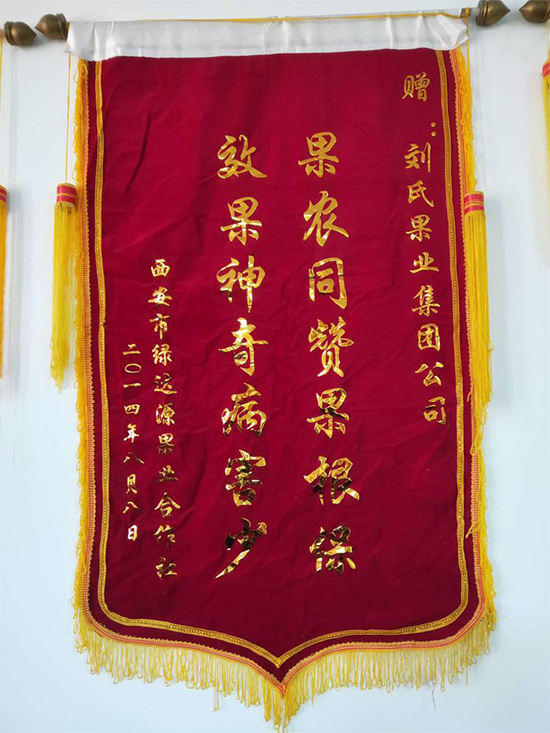 赠：刘氏果业集团公司
果农同赞果根绿
效果神奇病害少
西安市绿达源果业合作社
二〇一四年八月八日